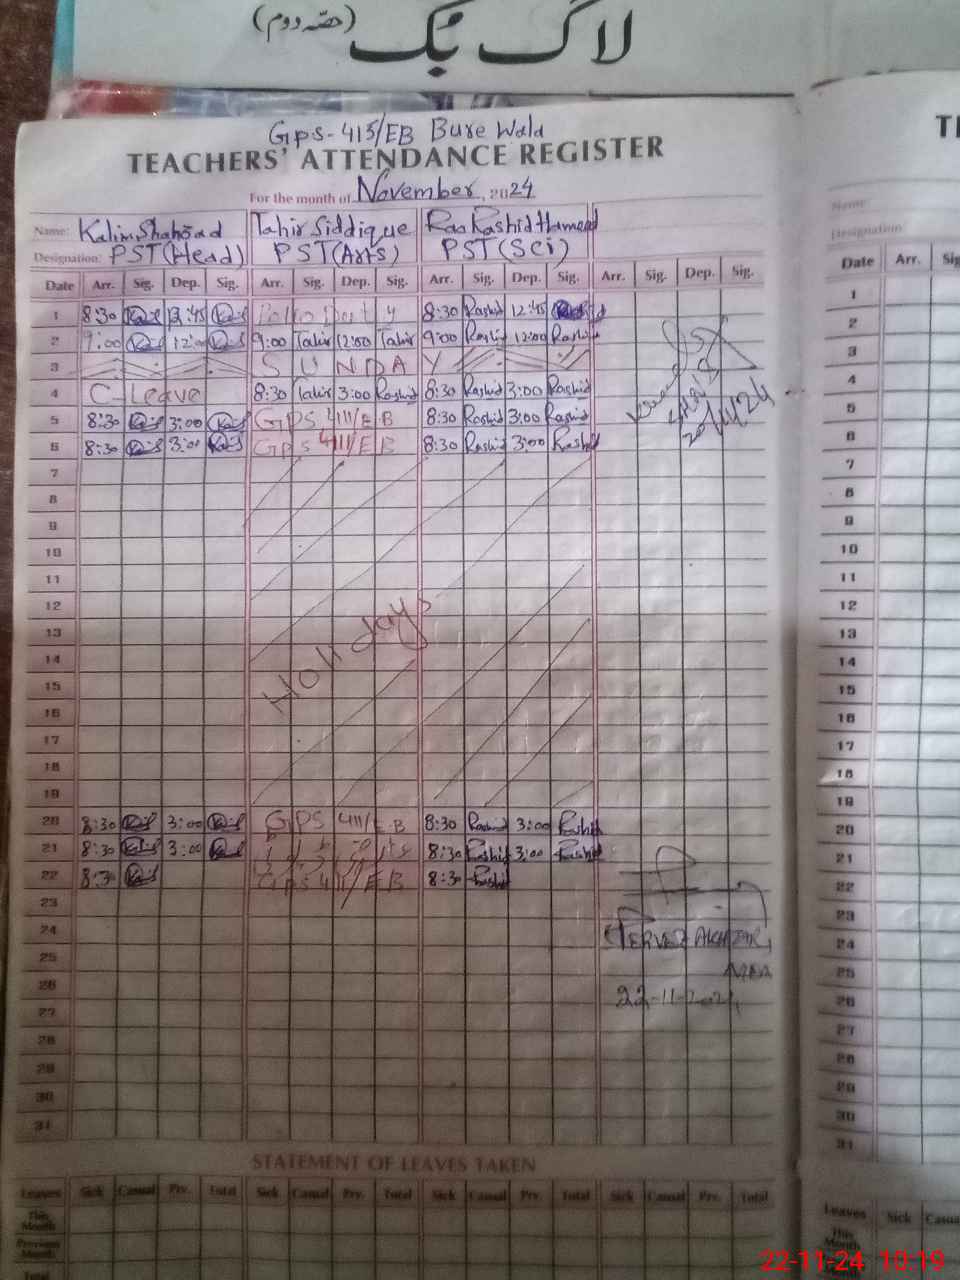 لاگ بک (حصّہ دوم)
GPS-415/EB Bure Wala
TEACHERS' ATTENDANCE REGISTER
For the month of November, 2024
Name: Kalim Shahzad Tahir Siddique Rao Rashid Hameed
Designation: PST (Head) PST (Arts) PST (Sci)
Date Arr. Sig. Dep. Sig. Arr. Sig. Dep. Sig. Arr. Sig. Dep. Sig. Arr. Sig. Dep. Sig.
1 8:30 8:30 Rashid 12:45
2 9:00 12:00 9:00 Tahir 12:00 Tahir 9:00 Rashid 12:00 Rashid
3 SUNDAY
4 C-Leave 8:30 Tahir 3:00 Rashid 8:30 Rashid 3:00 Rashid
5 8:30 3:00 GPS 411/EB 8:30 Rashid 3:00 Rashid
6 8:30 3:00 GPS 411/EB 8:30 Rashid 3:00 Rashid
7
8
9
10
11
12
13 Holidays
14
15
16
17
18
19
20 8:30 3:00 GPS 411/EB 8:30 Rashid 3:00 Rashid
21 8:30 3:00 8:30 Rashid 3:00 Rashid
22 8:30 GPS 411/EB 8:30 Rashid
23
24 PERVEZ AKHTAR,
25
26 22-11-2024
27
28
29
30
31
20/11/24
STATEMENT OF LEAVES TAKEN
Leaves Sick Casual Prv. Total Sick Casual Prv. Total Sick Casual Prv. Total Sick Casual Prv. Total
This Month
Previous Month
Total
Name:
Designation:
Date Arr.
1
2
3
4
5
6
7
8
9
10
11
12
13
14
15
16
17
18
19
20
21
22
23
24
25
26
27
28
29
30
31
Leaves Sick
This Month
22-11-24 10:19